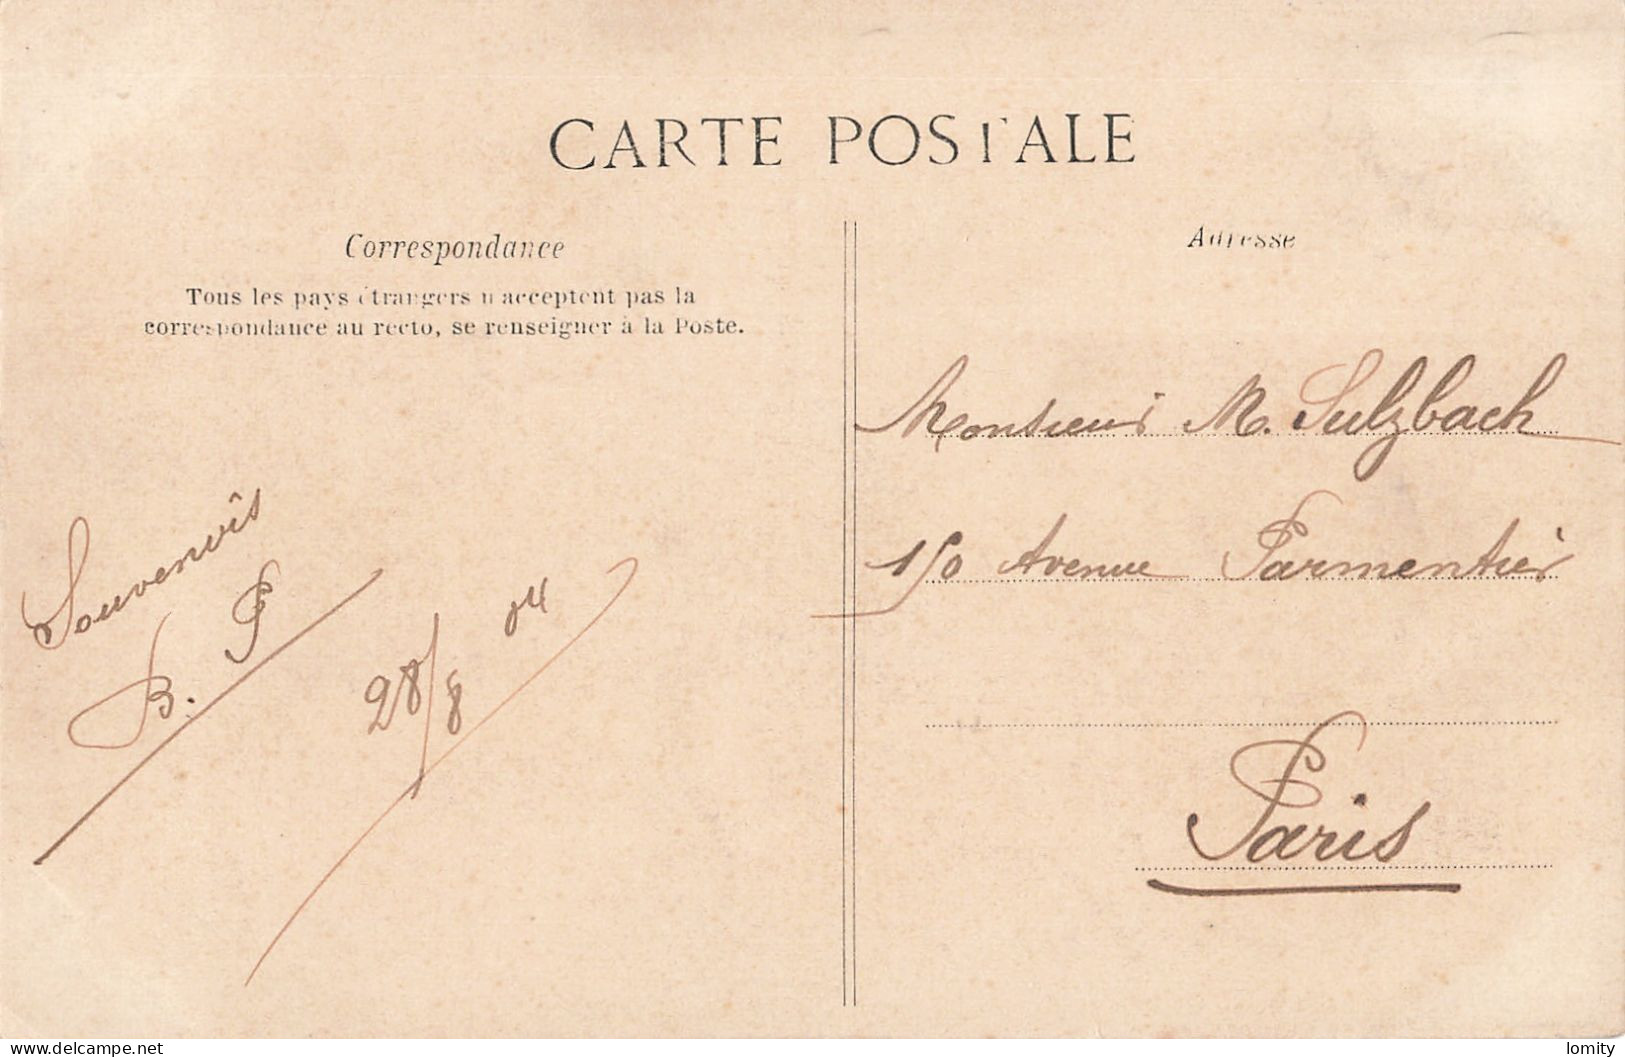 CARTE POSTALE
Correspondance
Tous les pays étrangers n'acceptent pas la
correspondance au recto, se renseigner à la Poste.
Souvenirs
B. P
28/8 04
Adresse
Monsieur M. Sulzbach
150 Avenue Parmentier
Paris
delcampe.net
lomity